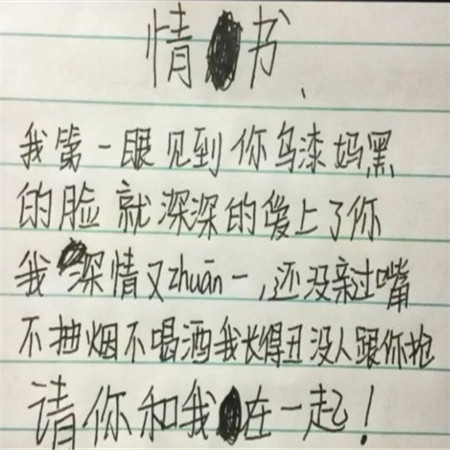 情书、
我第一眼见到你乌漆妈黑
的脸就深深的爱上了你
我深情又zhuān一,还没亲过嘴
不抽烟不喝酒我长得丑没人跟你抢
请你和我在一起!